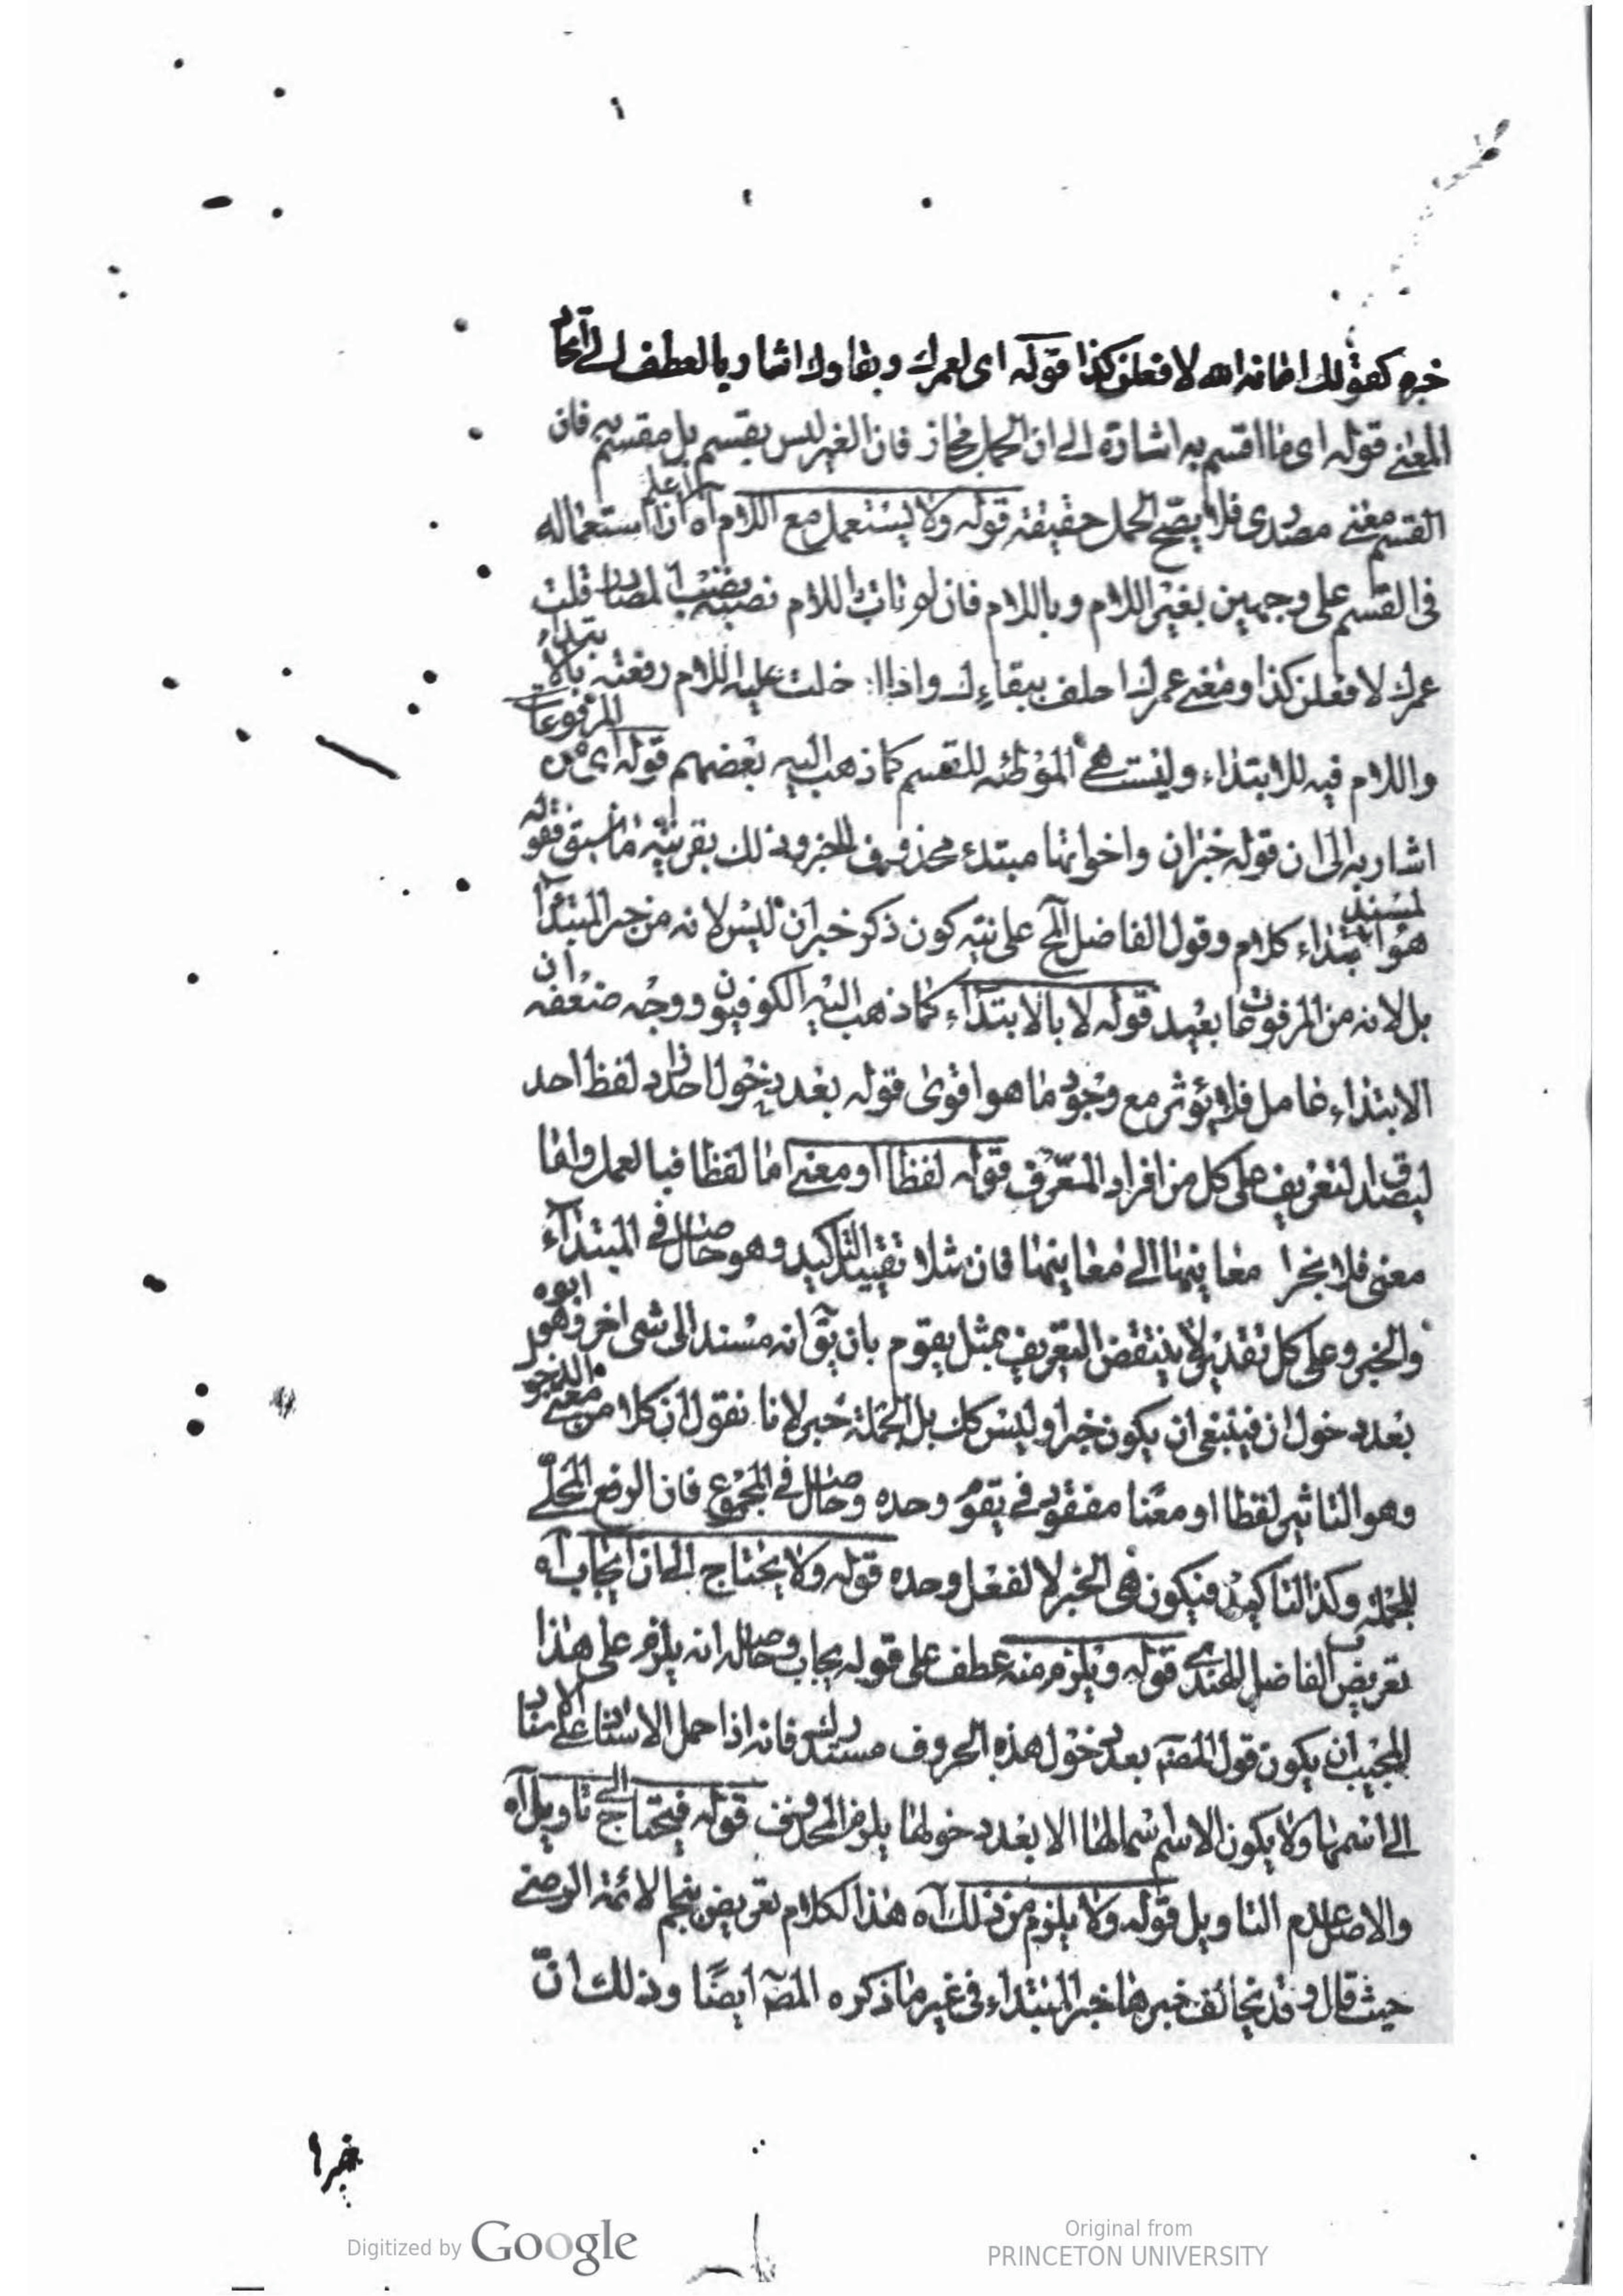 خبره كقولك امانة الله لافعلن كذا قوله اى لعمرك وبقاوك اشار بالعطف الى اتحاد
المعنى قوله اى ما اقسم به اشارة الى ان الحمل مجاز فان الغير ليس بقسم بل مقسم به فان
القسم معنى مصدرى فلا يصح الحمل حقيقة قوله ولا يستعمل مع اللام آه اعلم ان استعماله
فى القسم على وجهين بغير اللام وباللام فان لم تات باللام نصبته نصب المصادر قلت
عمرك لافعلن كذا ومعنى عمرك احلف ببقاءك واذا ادخلت عليه اللام رفعته بالابتداء
واللام فيه للابتداء وليست هى الموطئه للقسم كما ذهب اليه بعضهم قوله اى من المرفوعات
اشار به الى ان قوله خبر ان واخواتها مبتدء محذوف الخبر وذلك بقرينة ما سبق فقوله
هو المسند ابتداء كلام وقول الفاضل المح على نية كون ذكر خبر ان ليس لانه من خبر المبتدأ
بل لانه من المرفوعات بعيد قوله لا بالابتداء كما ذهب اليه الكوفيون ووجه ضعفه ان
الابتداء عامل فلا يؤثر مع وجود ما هو اقوى قوله بعد دخول احد زاد لفظ احد
ليصدق التعريف على كل من افراد المعرف قوله لفظا او معنى اما لفظا فبالعمل واما
معنى فلانجرا معانيها الى معانيهما فان مثلا تفيد التاكيد وهو حاصل فى المبتداء
والخبر وعلى كل تقدير لا ينتقض التعريف بمثل يقوم بان يق انه مسند الى شى اخر وهو ابوه
بعد دخول ان فينبغى ان يكون خبرا وليس كك بل الجملة خبر لانا نقول ان كلا من معنى الدخول
وهو التاثير لفظا او معنا مفقود فى يقوم وحده وحاصل فى المجموع فان الرفع المحلى
للجملة وكذا التاكيد فيكون هى الخبر لا لفعل وحده قوله ولا يحتاج الى ان يجاب آه
تعريض الفاضل الهندى قوله ويلزم منه عطف على قوله يجاب وحاصله انه يلزم على هذا
المجيب ان يكون قول المصـ بعد دخول هذه الحروف مستدركا فانه اذا حمل الاسناد على الاسناد
الى اسمها ولا يكون الاسم اسما لها الا بعد دخولها يلزم المحذوف قوله فيحتاج الى تاويل آه
والاصل عدم التاويل قوله ولا يلزم من ذلك آه هذا الكلام تعريض بنجم الائمة الرضى
حيث قال وقد يخالف خبرها خبر المبتداء فى غير ما ذكره المصـ ايضًا وذلك انّ
خبرا
Digitized by Google
Original from
PRINCETON UNIVERSITY